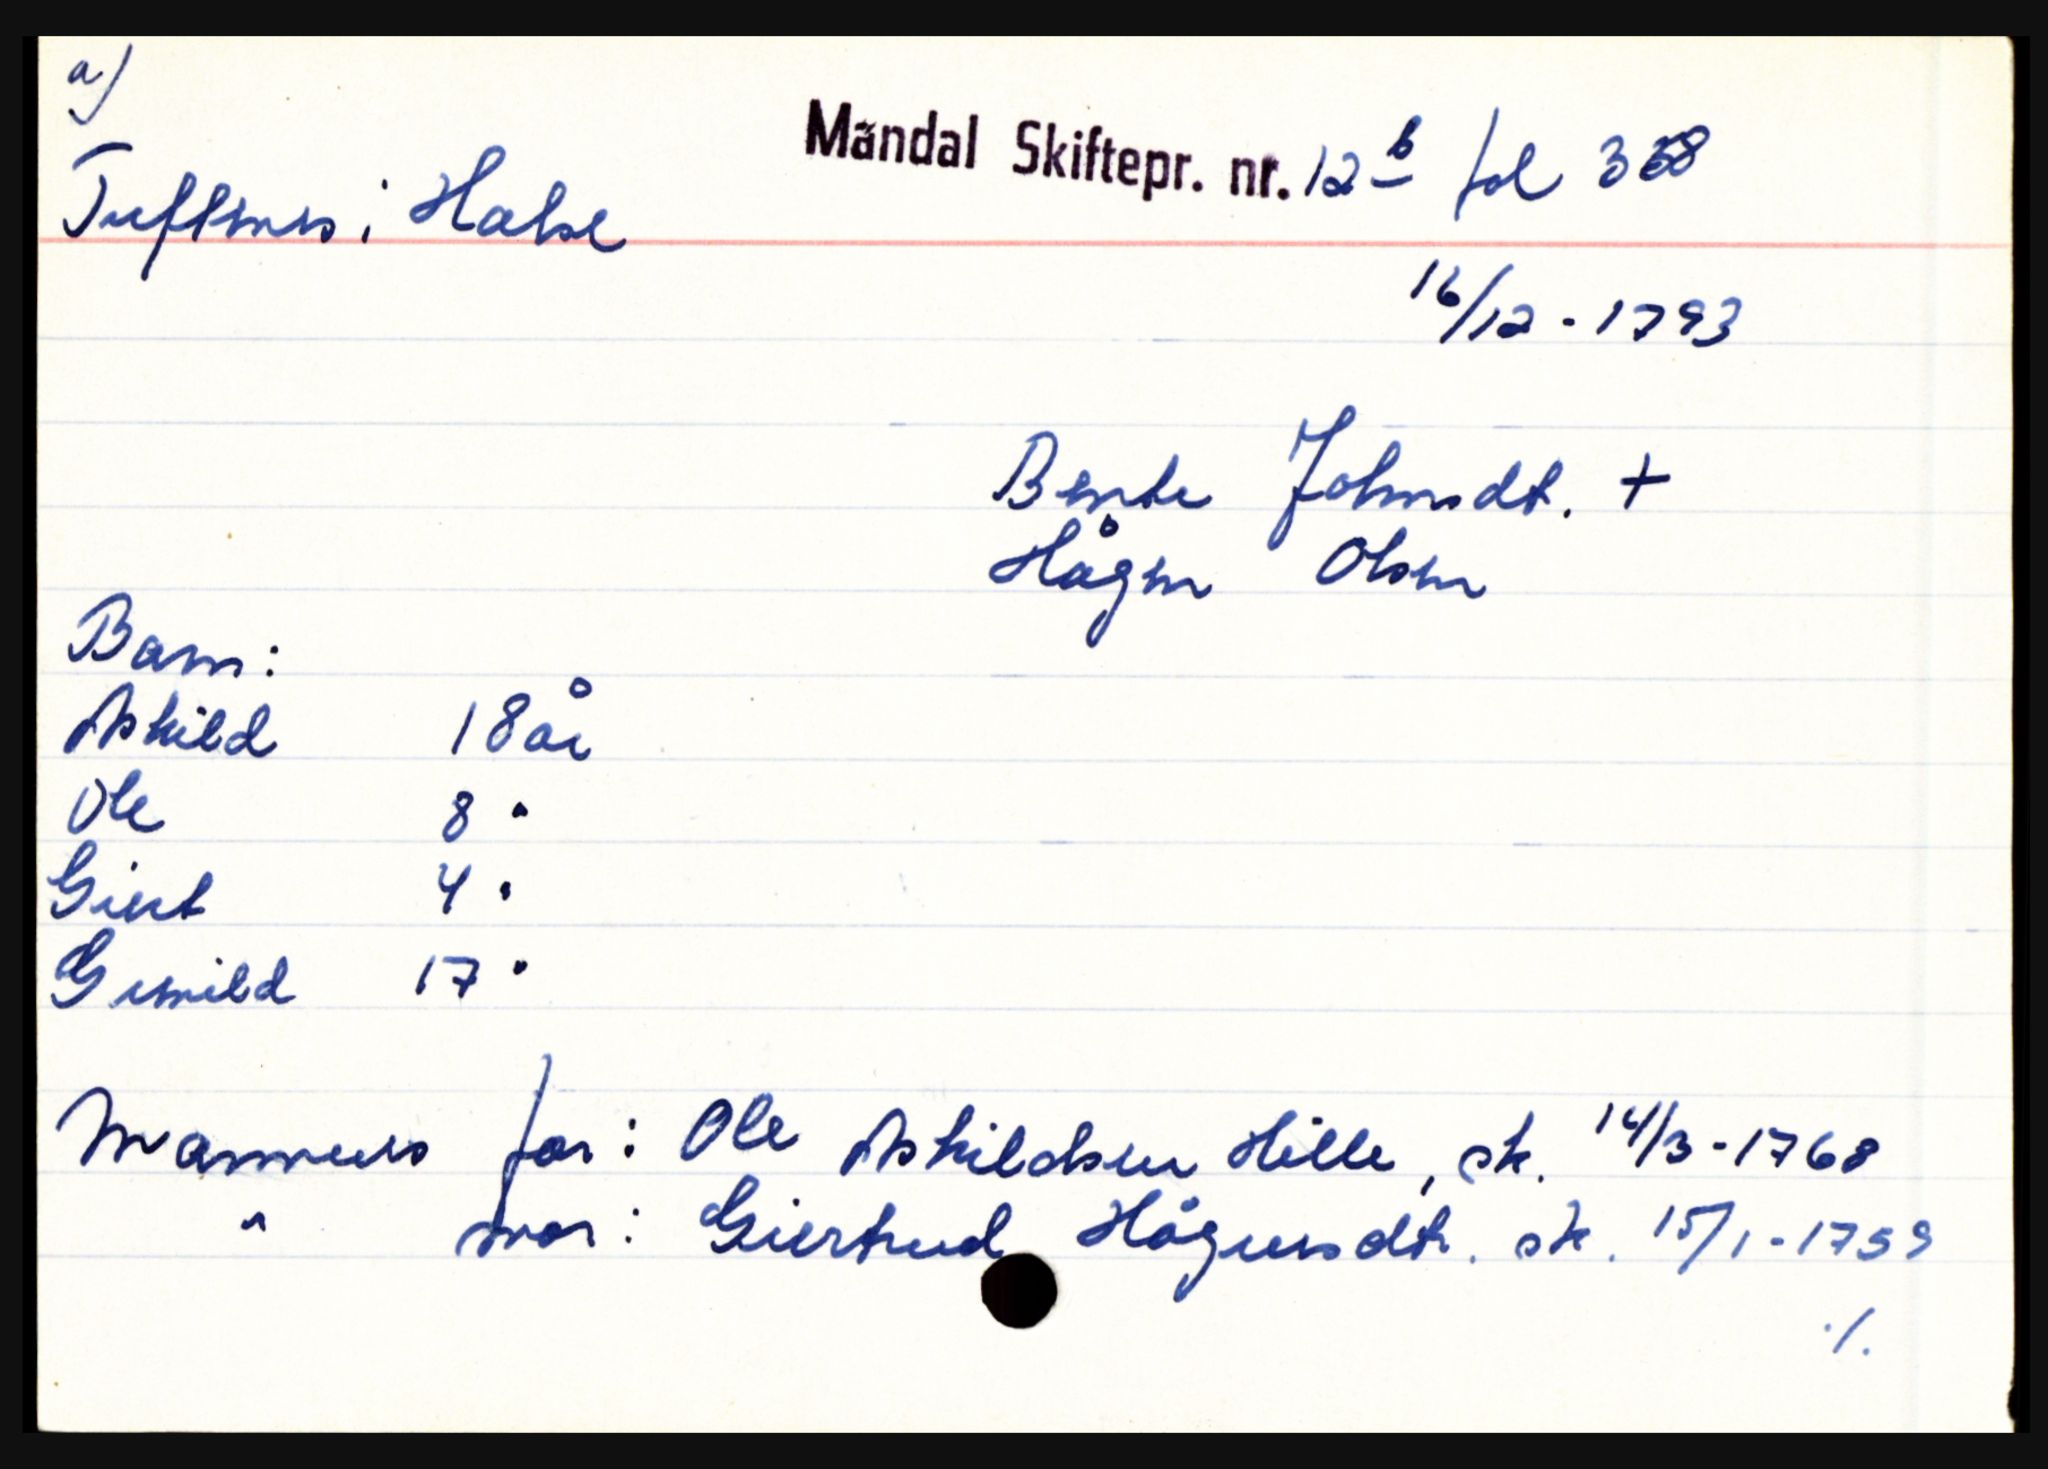 a)
Mandal Skiftepr. nr. 12 b fol 358
Tuftenes i Halse
16/12 - 1793
Bente Johnsdt. +
Hågen Olsen
Barn:
Askild 18 år
Ole 8 "
Giert 4 "
Gunild 17 "
Mannens far: Ole Askildsen Hille, sk. 14/3 - 1768
" mor: Giertrud Hågensdt. sk. 15/1 - 1759
./.